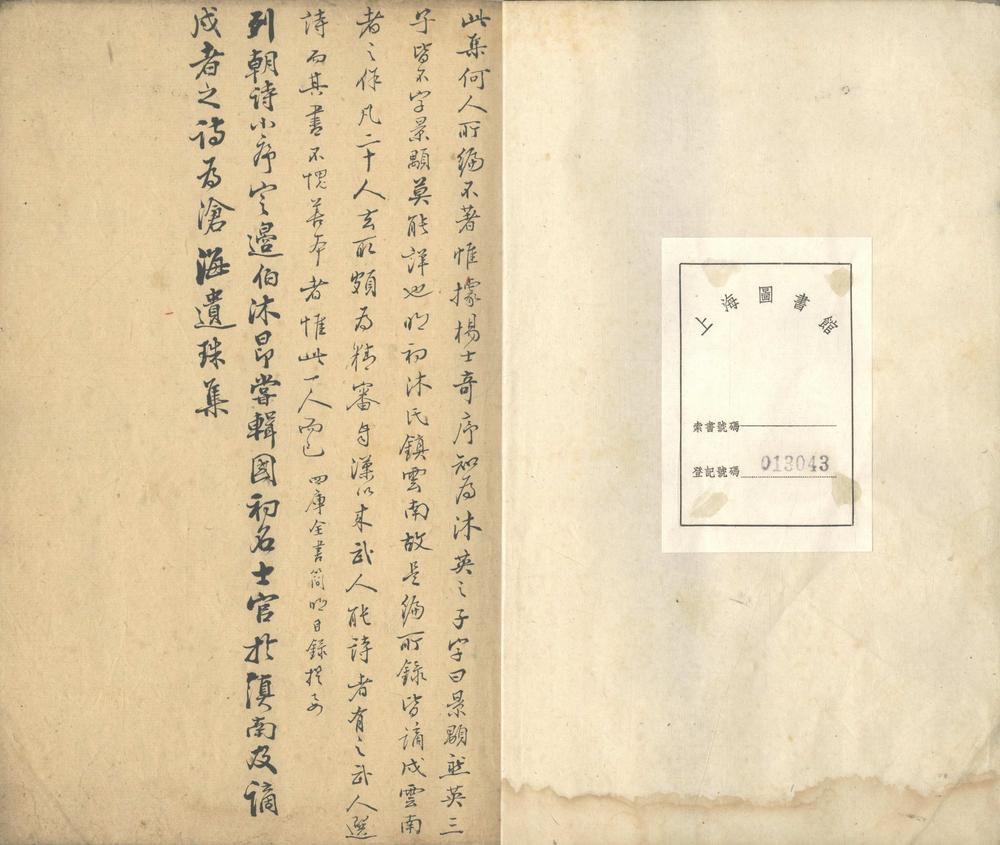 此集何人所編不著惟據楊士奇序知為沐英之子字曰景顒然英三
子皆不字景顒莫能詳也明初沐氏鎮雲南故是編所錄皆謫戍雲南
者之作凡二十人去取頗為精審自漢以來武人能詩者有之武人選
詩而其書不愧善本者惟此一人而已 四庫全書簡明目錄提要
列朝詩小序定邊伯沐昂嘗輯國初名士官於滇南及謫
戍者之詩為滄海遺珠集
上海圖書館
索書號碼
登記號碼 013043